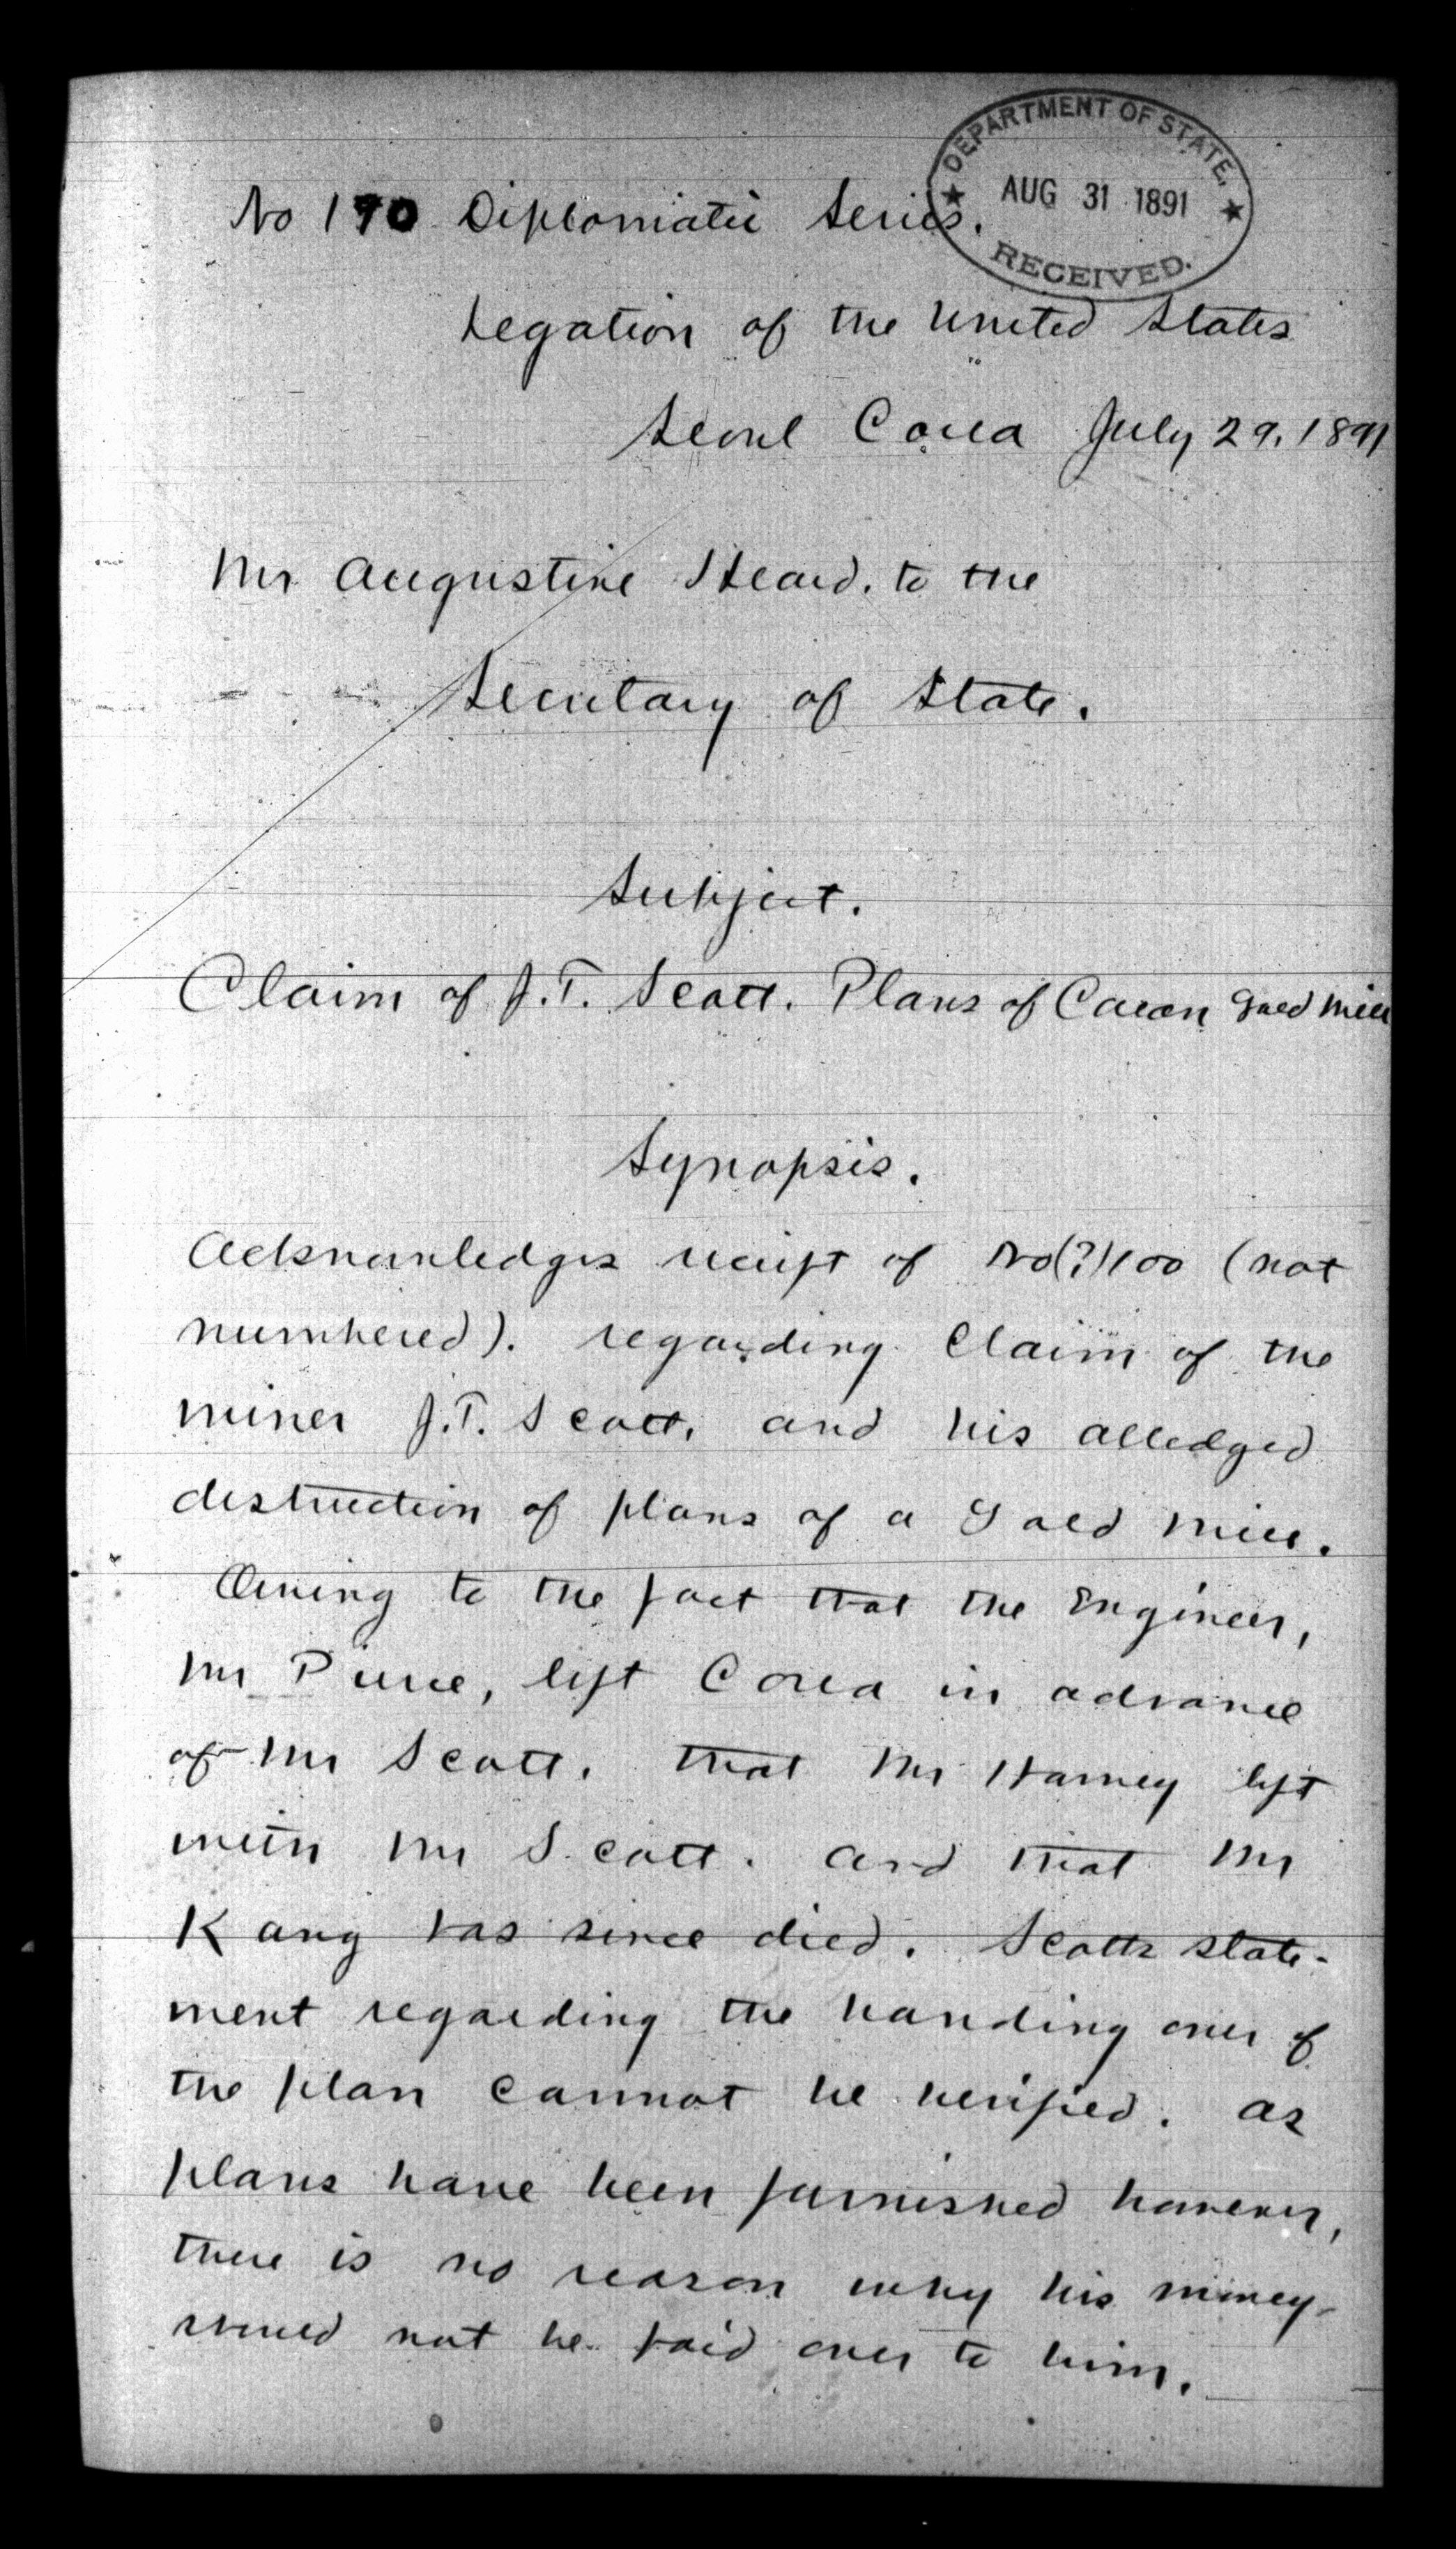 DEPARTMENT OF STATE,
AUG 31 1891
RECEIVED.
No 190 Diplomatic Series.
Legation of the United States
Seoul Corea July 29, 1891
Mr Augustine Heard. to the
Secretary of State.
Subject.
Claim of J.T. Scott. Plans of Corean Gold Mill
Synopsis.
Acknowledges receipt of No(?)100 (not
numbered). regarding Claim of the
miner J.T. Scott, and his alledged
destruction of plans of a Gold Mill.
Owing to the fact that the Engineer,
Mr Pierce, left Corea in advance
of Mr Scott. that Mr Harvey left
with Mr Scott. and that Mr
Kang has since died. Scotts state-
ment regarding the handing over of
the plan cannot be verified. as
plans have been furnished however,
there is no reason why his money
should not be paid over to him.